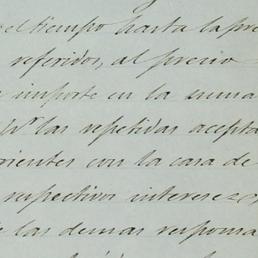 el tiempo hasta la pre
referidos, al precio
importe en la suma
las repetidas acepta
rientes con la casa de
respectivos intereses,
las demas responsa